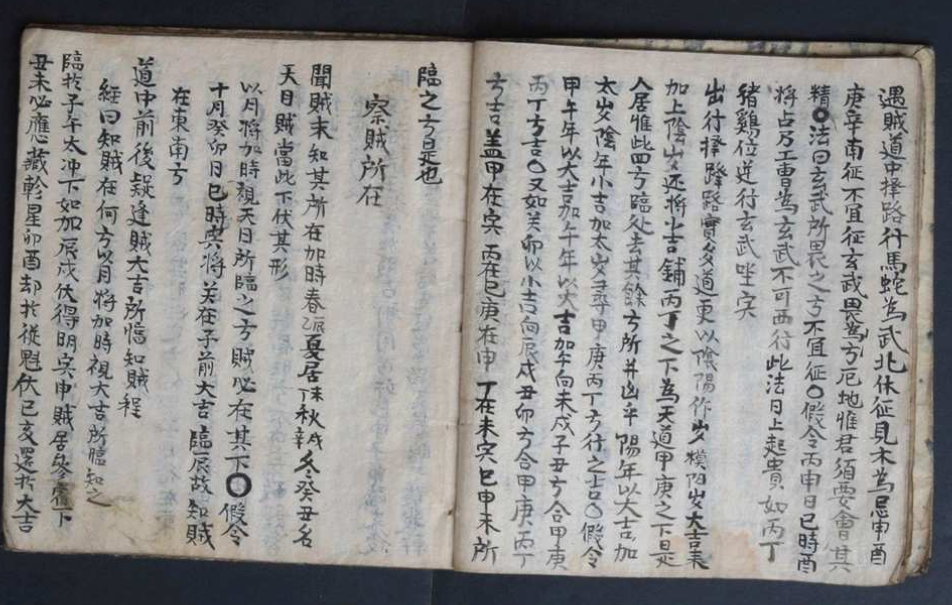 遇賊道中擇路行馬蛇為武北休征見木為忌申酉
庚辛南征不宜征玄武畏為方厄地惟君須要會其
精〇法曰玄武所畏之方不宜征〇假令丙申日巳時酉
將占乃工曹為玄武不可西行此法日上起貴如丙丁
猪鷄位逆行玄武坐寅
出行擇路實多道更以陰陽作歲模陽歲大吉
加上陰歲还將小吉鋪丙丁之下為天道甲庚之下是
人居惟此四方臨处去其餘方所并凶乎陽年以大吉加
太歲陰年小吉加太歲尋甲庚丙丁方行之吉〇假令
甲午年以大吉加午年以大吉加午向未戌子丑方合甲庚
丙丁方吉〇又如关卯以小吉向辰戌丑卯方合甲庚丙丁
方吉盖甲在寅丙在巳庚在申丁在未寅巳申未所
臨之方是也
察賊所在
聞賊未知其所在加時春乙辰夏居丁未秋辛戌冬癸丑名
天目賊當此下伏其形
以月將加時視天目所臨之方賊必在其下〇假令
十月癸卯日巳時寅將关在子前大吉臨辰故知賊
在東南方
道中前後疑逢賊大吉所臨知賊程
經曰知賊在何方以月將加時視大吉所臨知之
臨於子午太冲下如加辰戌伏得明寅申賊居參下
丑未必應藏軫星卯酉却於從魁伏巳亥還於大吉